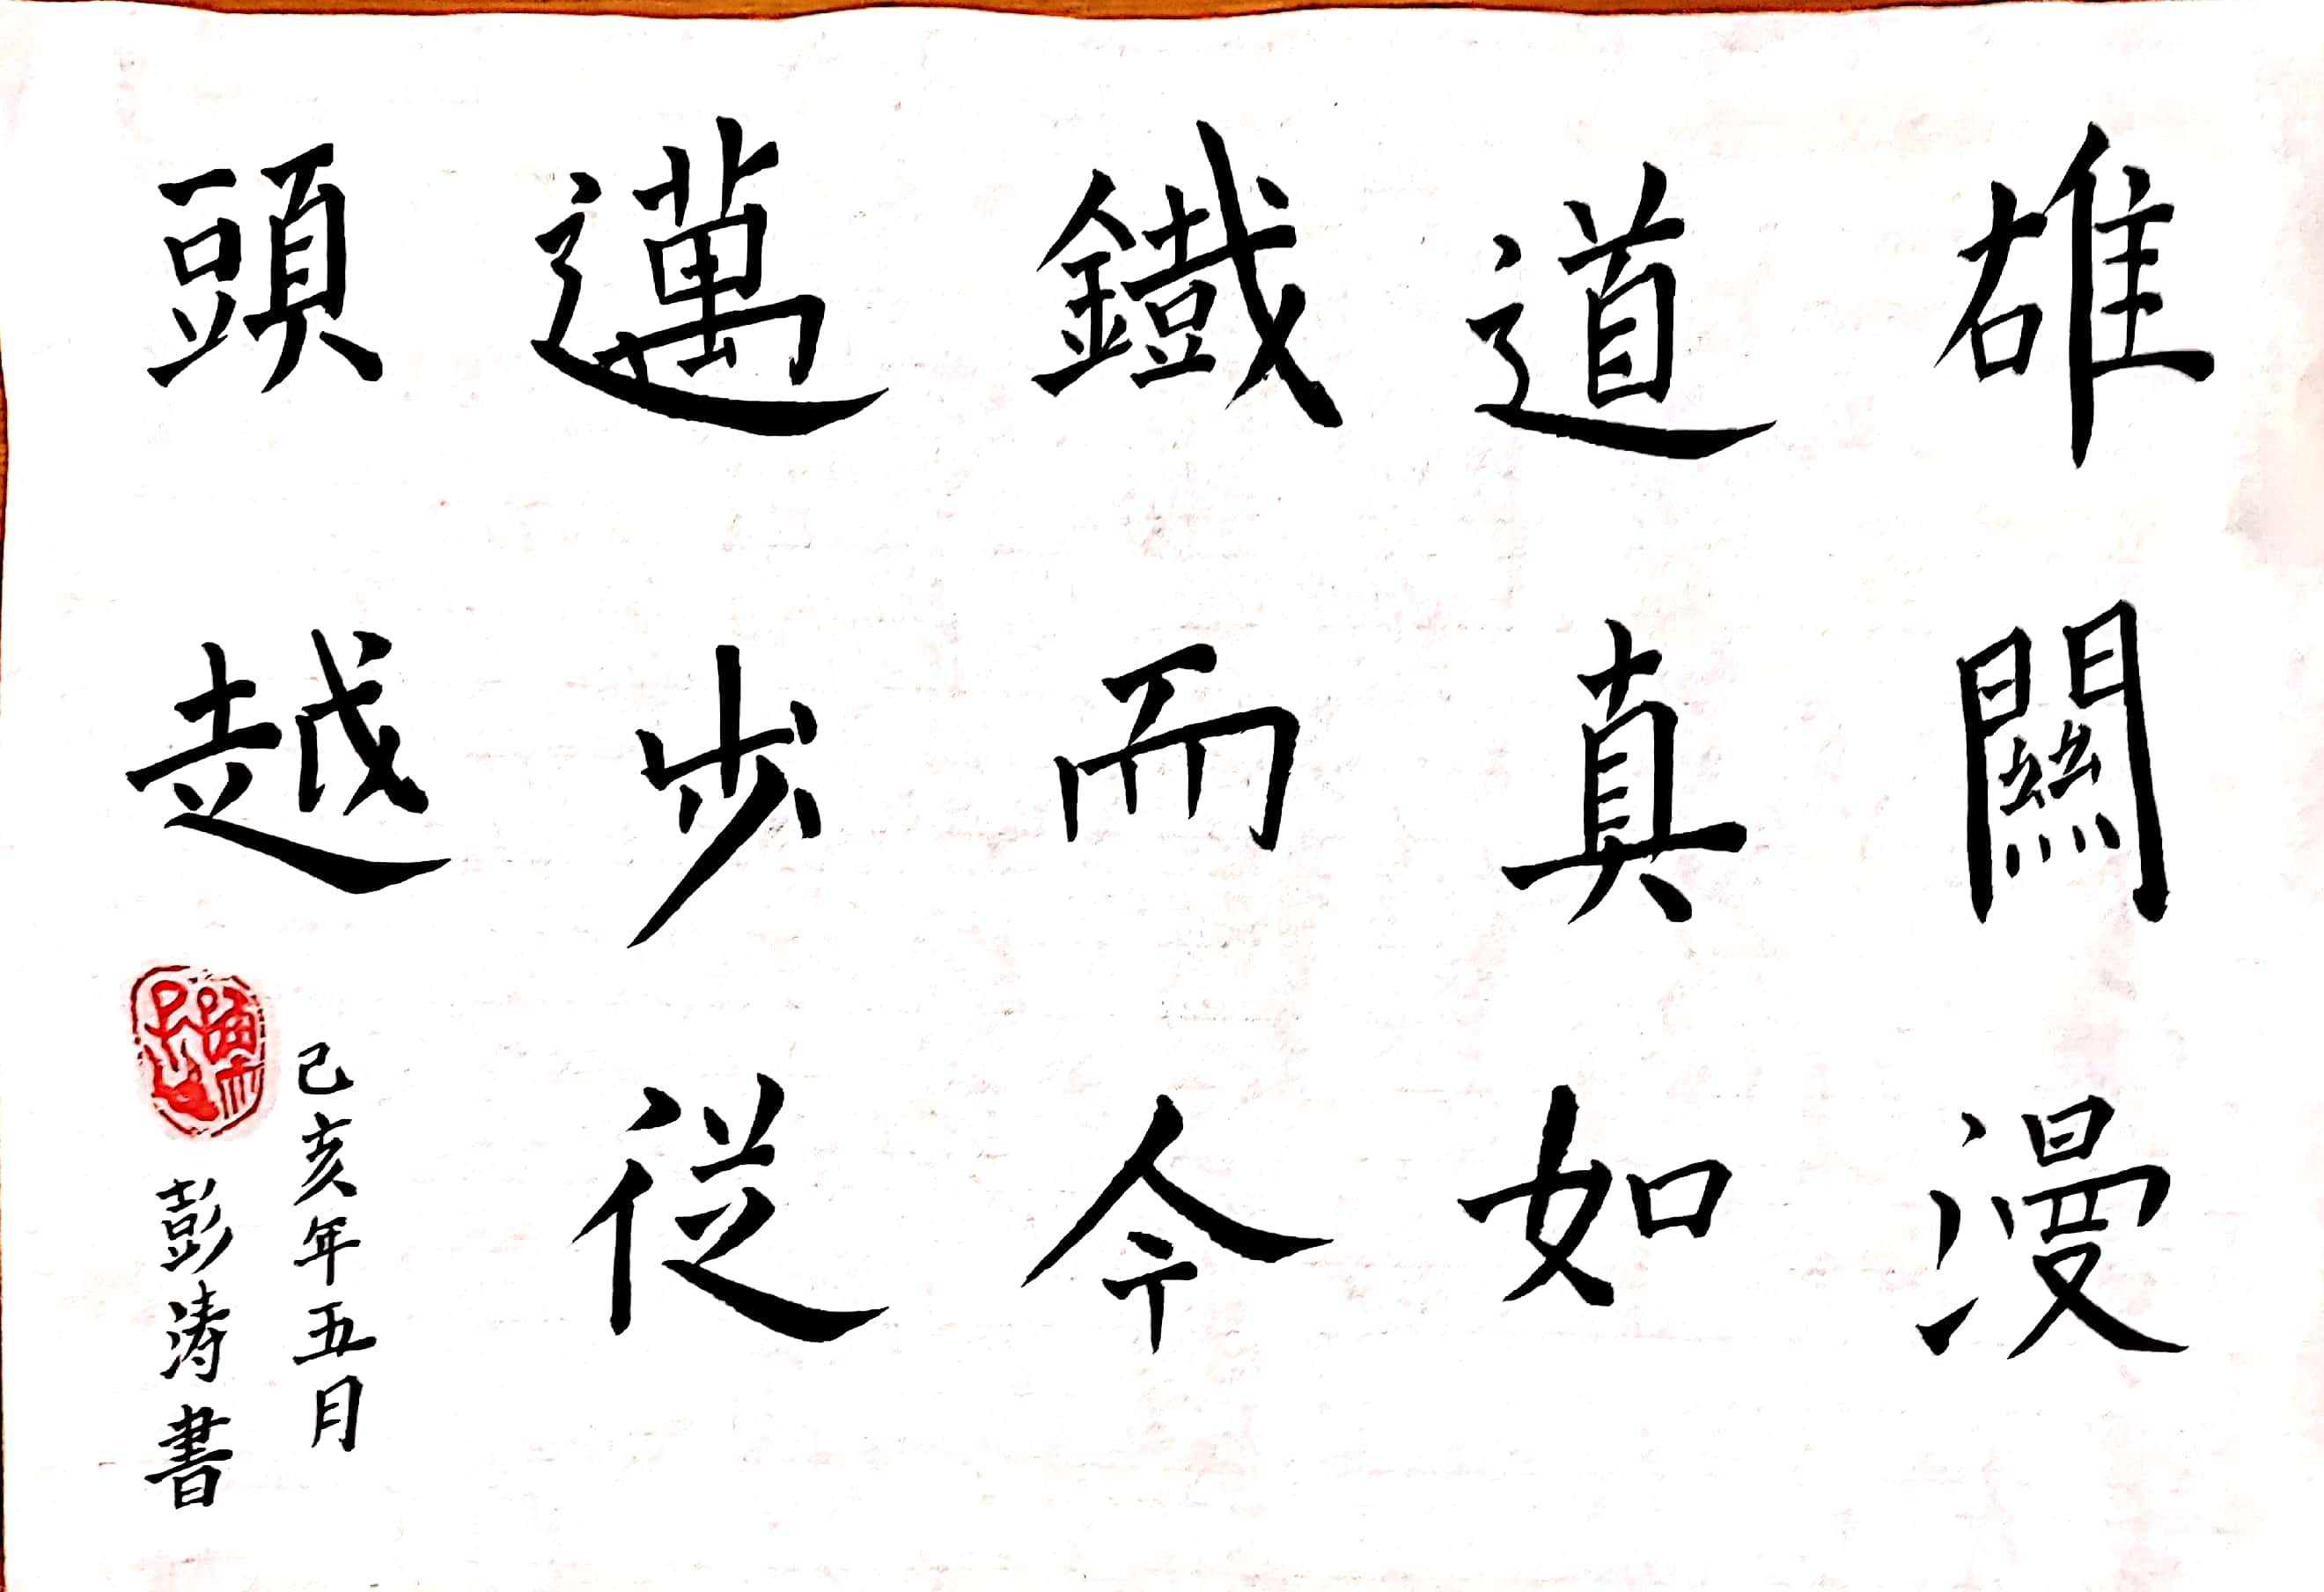 雄關漫
道真如
鐵而今
邁步從
頭越
己亥年五月
彭涛書